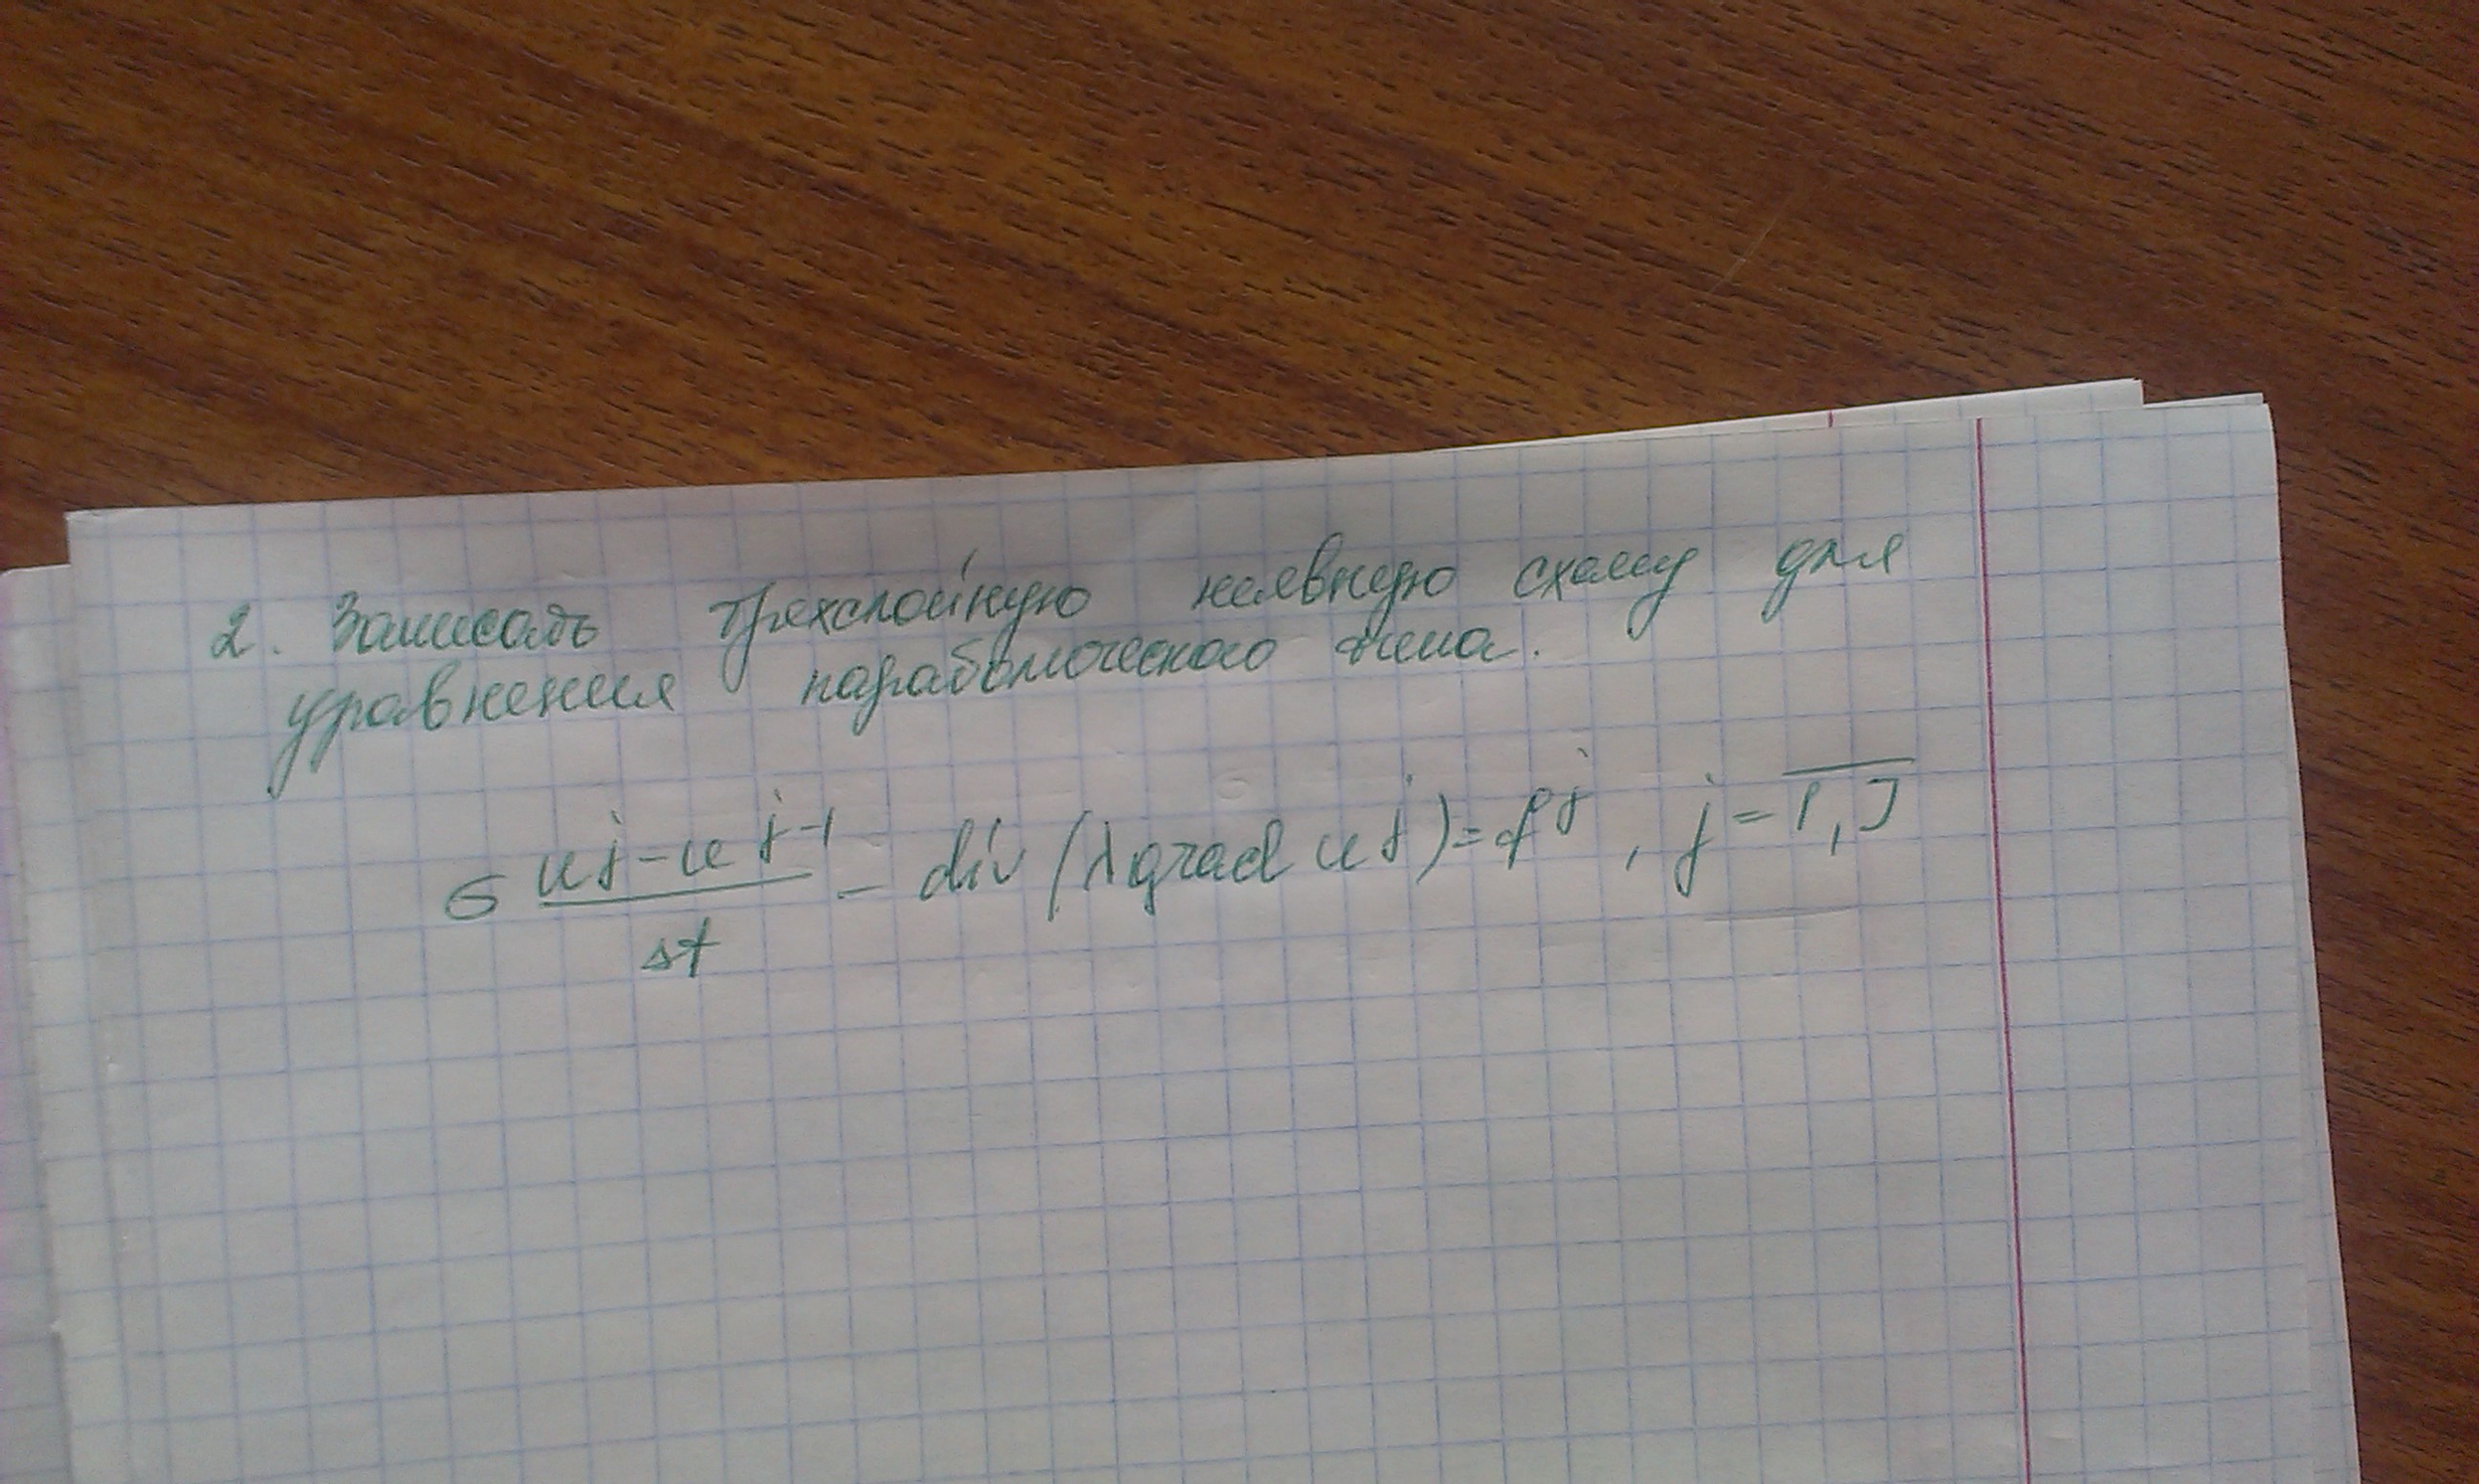 2. Записать трехслойную неявную схему для
уравнения параболического типа.
σ (u^j - u^{j-1}) / Δt - div (λ grad u^j) = f^j , j = \overline{1, J}